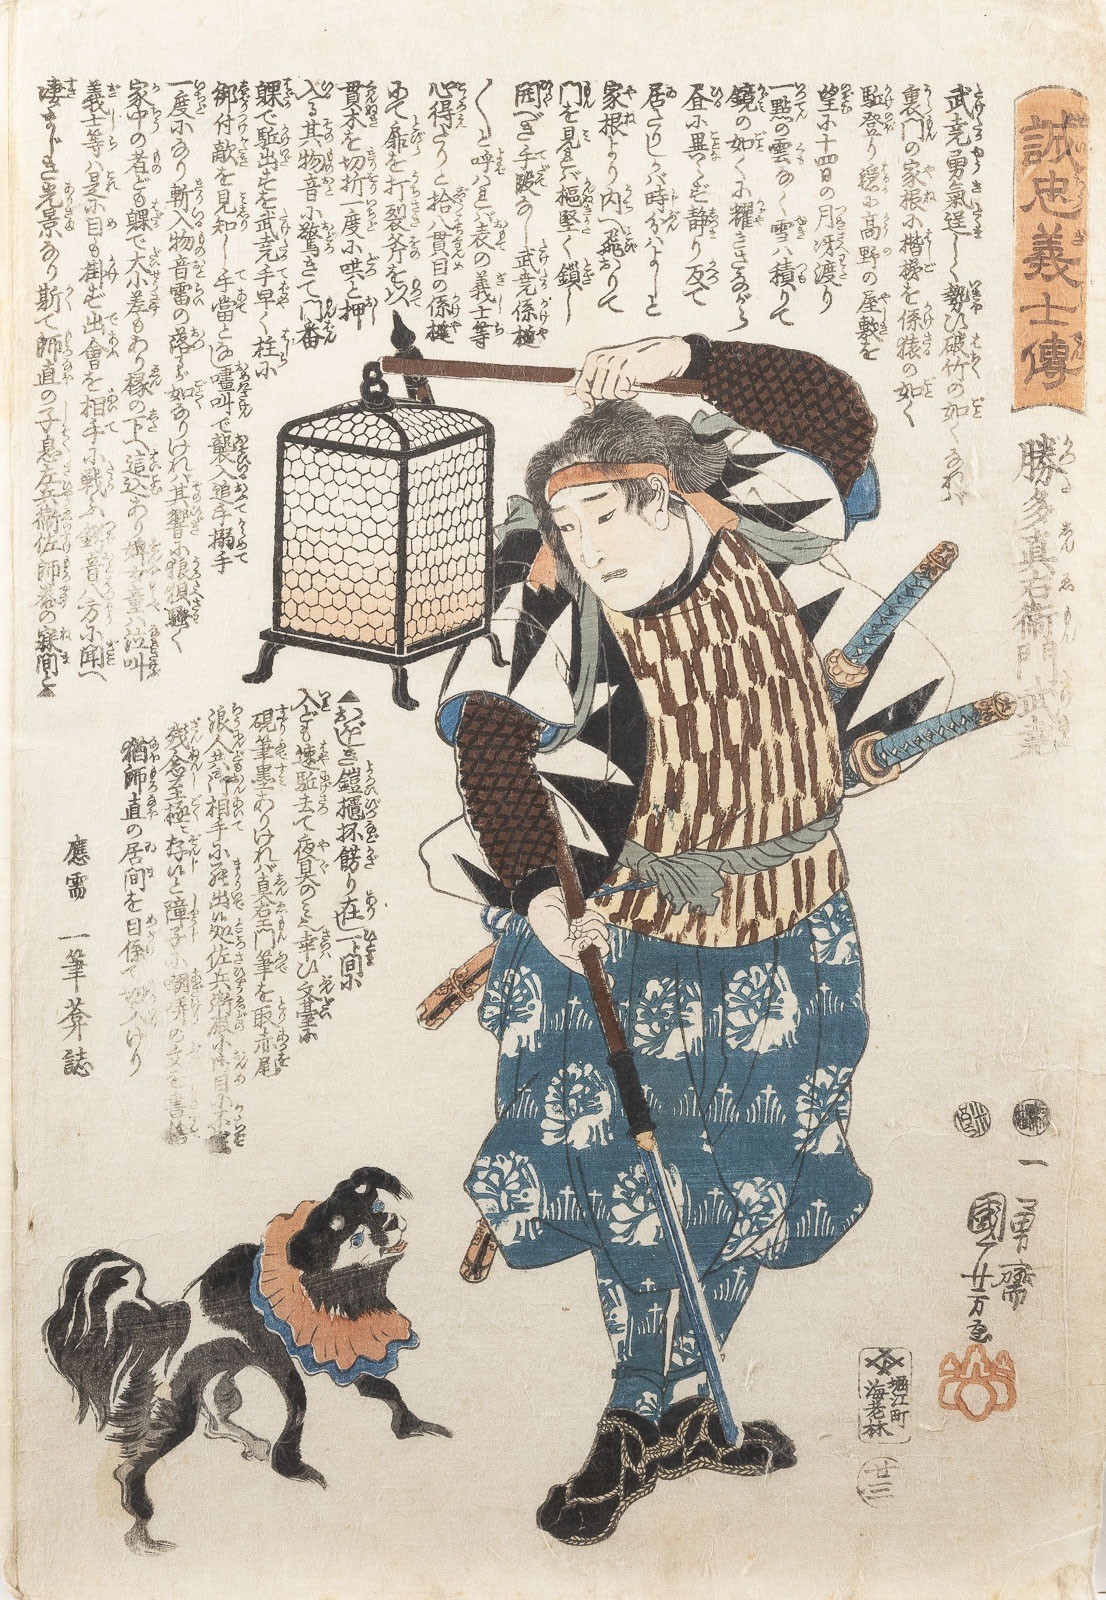 誠忠義士傳
勝多真右衛門武尭
武尭勇氣逞しく勢ひ破竹の如くなれバ
裏門の家根に楷梯を係猿の如く
駈登り穏に高野の屋敷を
望に十四日の月冴渡り
一點の雲なく雪ハ積りて
鏡の如くに耀きさながら
昼に異らず静り反て
居たりしが時分ハよしと
家根より内へ飛おりて
門を見れバ樞堅く鎖し
開べき手段なし武尭係樋
〱と呼ハれバ表の義士等
心得たりと拾八貫目の係樋
にて扉を打裂斧を以
貫木を切折一度に哄と押
入る其物音に驚きて門番
躶で駈出すを武尭手早く柱に
御付敵を見知し手當となし喧叫で襲入追手搦手
一度になり斬入物音雷の落るが如なりけれバ其響に狼狽騒く
家中の者ども躶で大小差もあり椽の下へ這込あり婦女童ハ泣叫
義士等ハ是に目も掛ず出會を相手に戦ふ鋒音八方に聞へ
凄まじき光景なり斯て師直の子息左兵衛佐師岩の寐間と
▲おぼしき鎧櫃抔餝り在一ト間に
入ども速駈去て夜具のミ幸ひ文臺に
硯筆墨ありけれバ真右門筆を取赤尾
浪人共御相手に罷出候処佐兵衛殿に御目にかゝらず
残念至極ニ存候と障子に嘲哢の文を書捨
猶師直の居間を目係て切入けり
應需
一筆葊誌
一勇齋
國芳画
堀江町
海老林
廿三